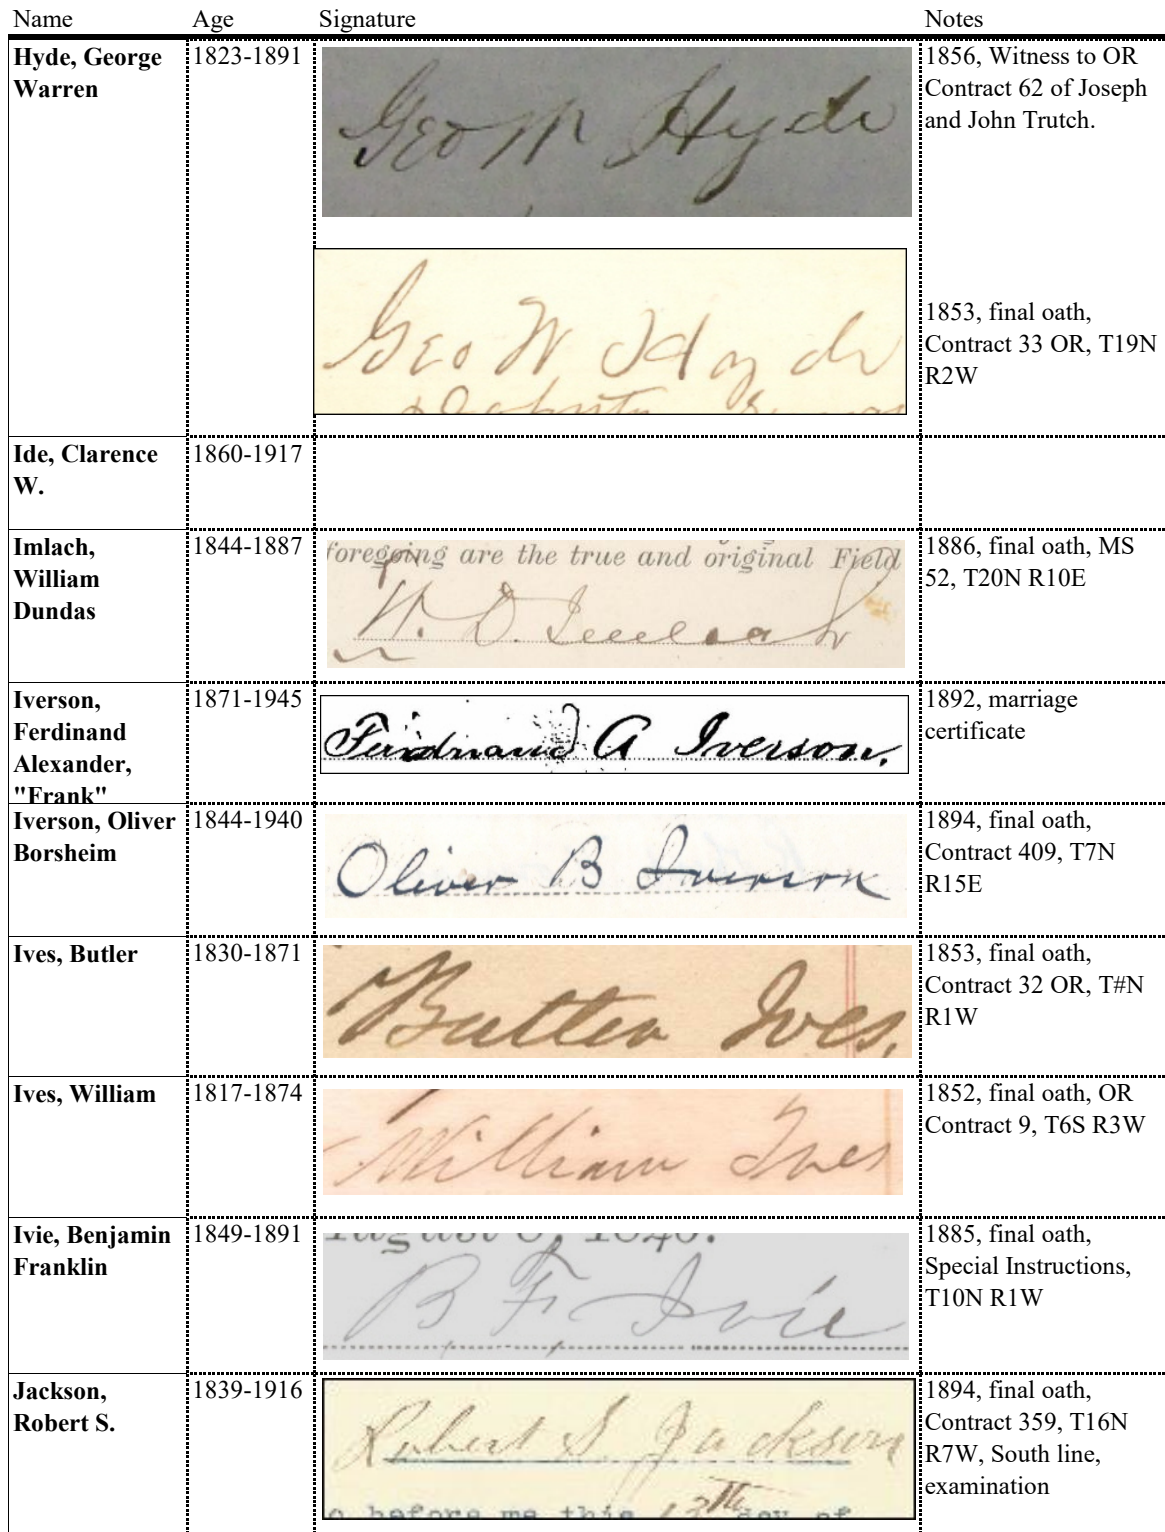 Name Age Signature Notes
Hyde, George Warren 1823-1891 Geo W Hyde 1856, Witness to OR
Contract 62 of Joseph
and John Trutch.
Geo W Hyde 1853, final oath,
Contract 33 OR, T19N
R2W
Ide, Clarence
W. 1860-1917
Imlach,
William
Dundas 1844-1887
foregoing are the true and original Field
W. D. Imlach
1886, final oath, MS
52, T20N R10E
Iverson,
Ferdinand
Alexander,
"Frank" 1871-1945
Ferdinand A Iverson.
1892, marriage
certificate
Iverson, Oliver
Borsheim 1844-1940
Oliver B Iverson
1894, final oath,
Contract 409, T7N
R15E
Ives, Butler 1830-1871
Butler Ives.
1853, final oath,
Contract 32 OR, T#N
R1W
Ives, William 1817-1874
William Ives
1852, final oath, OR
Contract 9, T6S R3W
Ivie, Benjamin
Franklin 1849-1891
B. F. Ivie
1885, final oath,
Special Instructions,
T10N R1W
Jackson,
Robert S. 1839-1916
Robert S. Jackson
o before me this 13th day of
1894, final oath,
Contract 359, T16N
R7W, South line,
examination